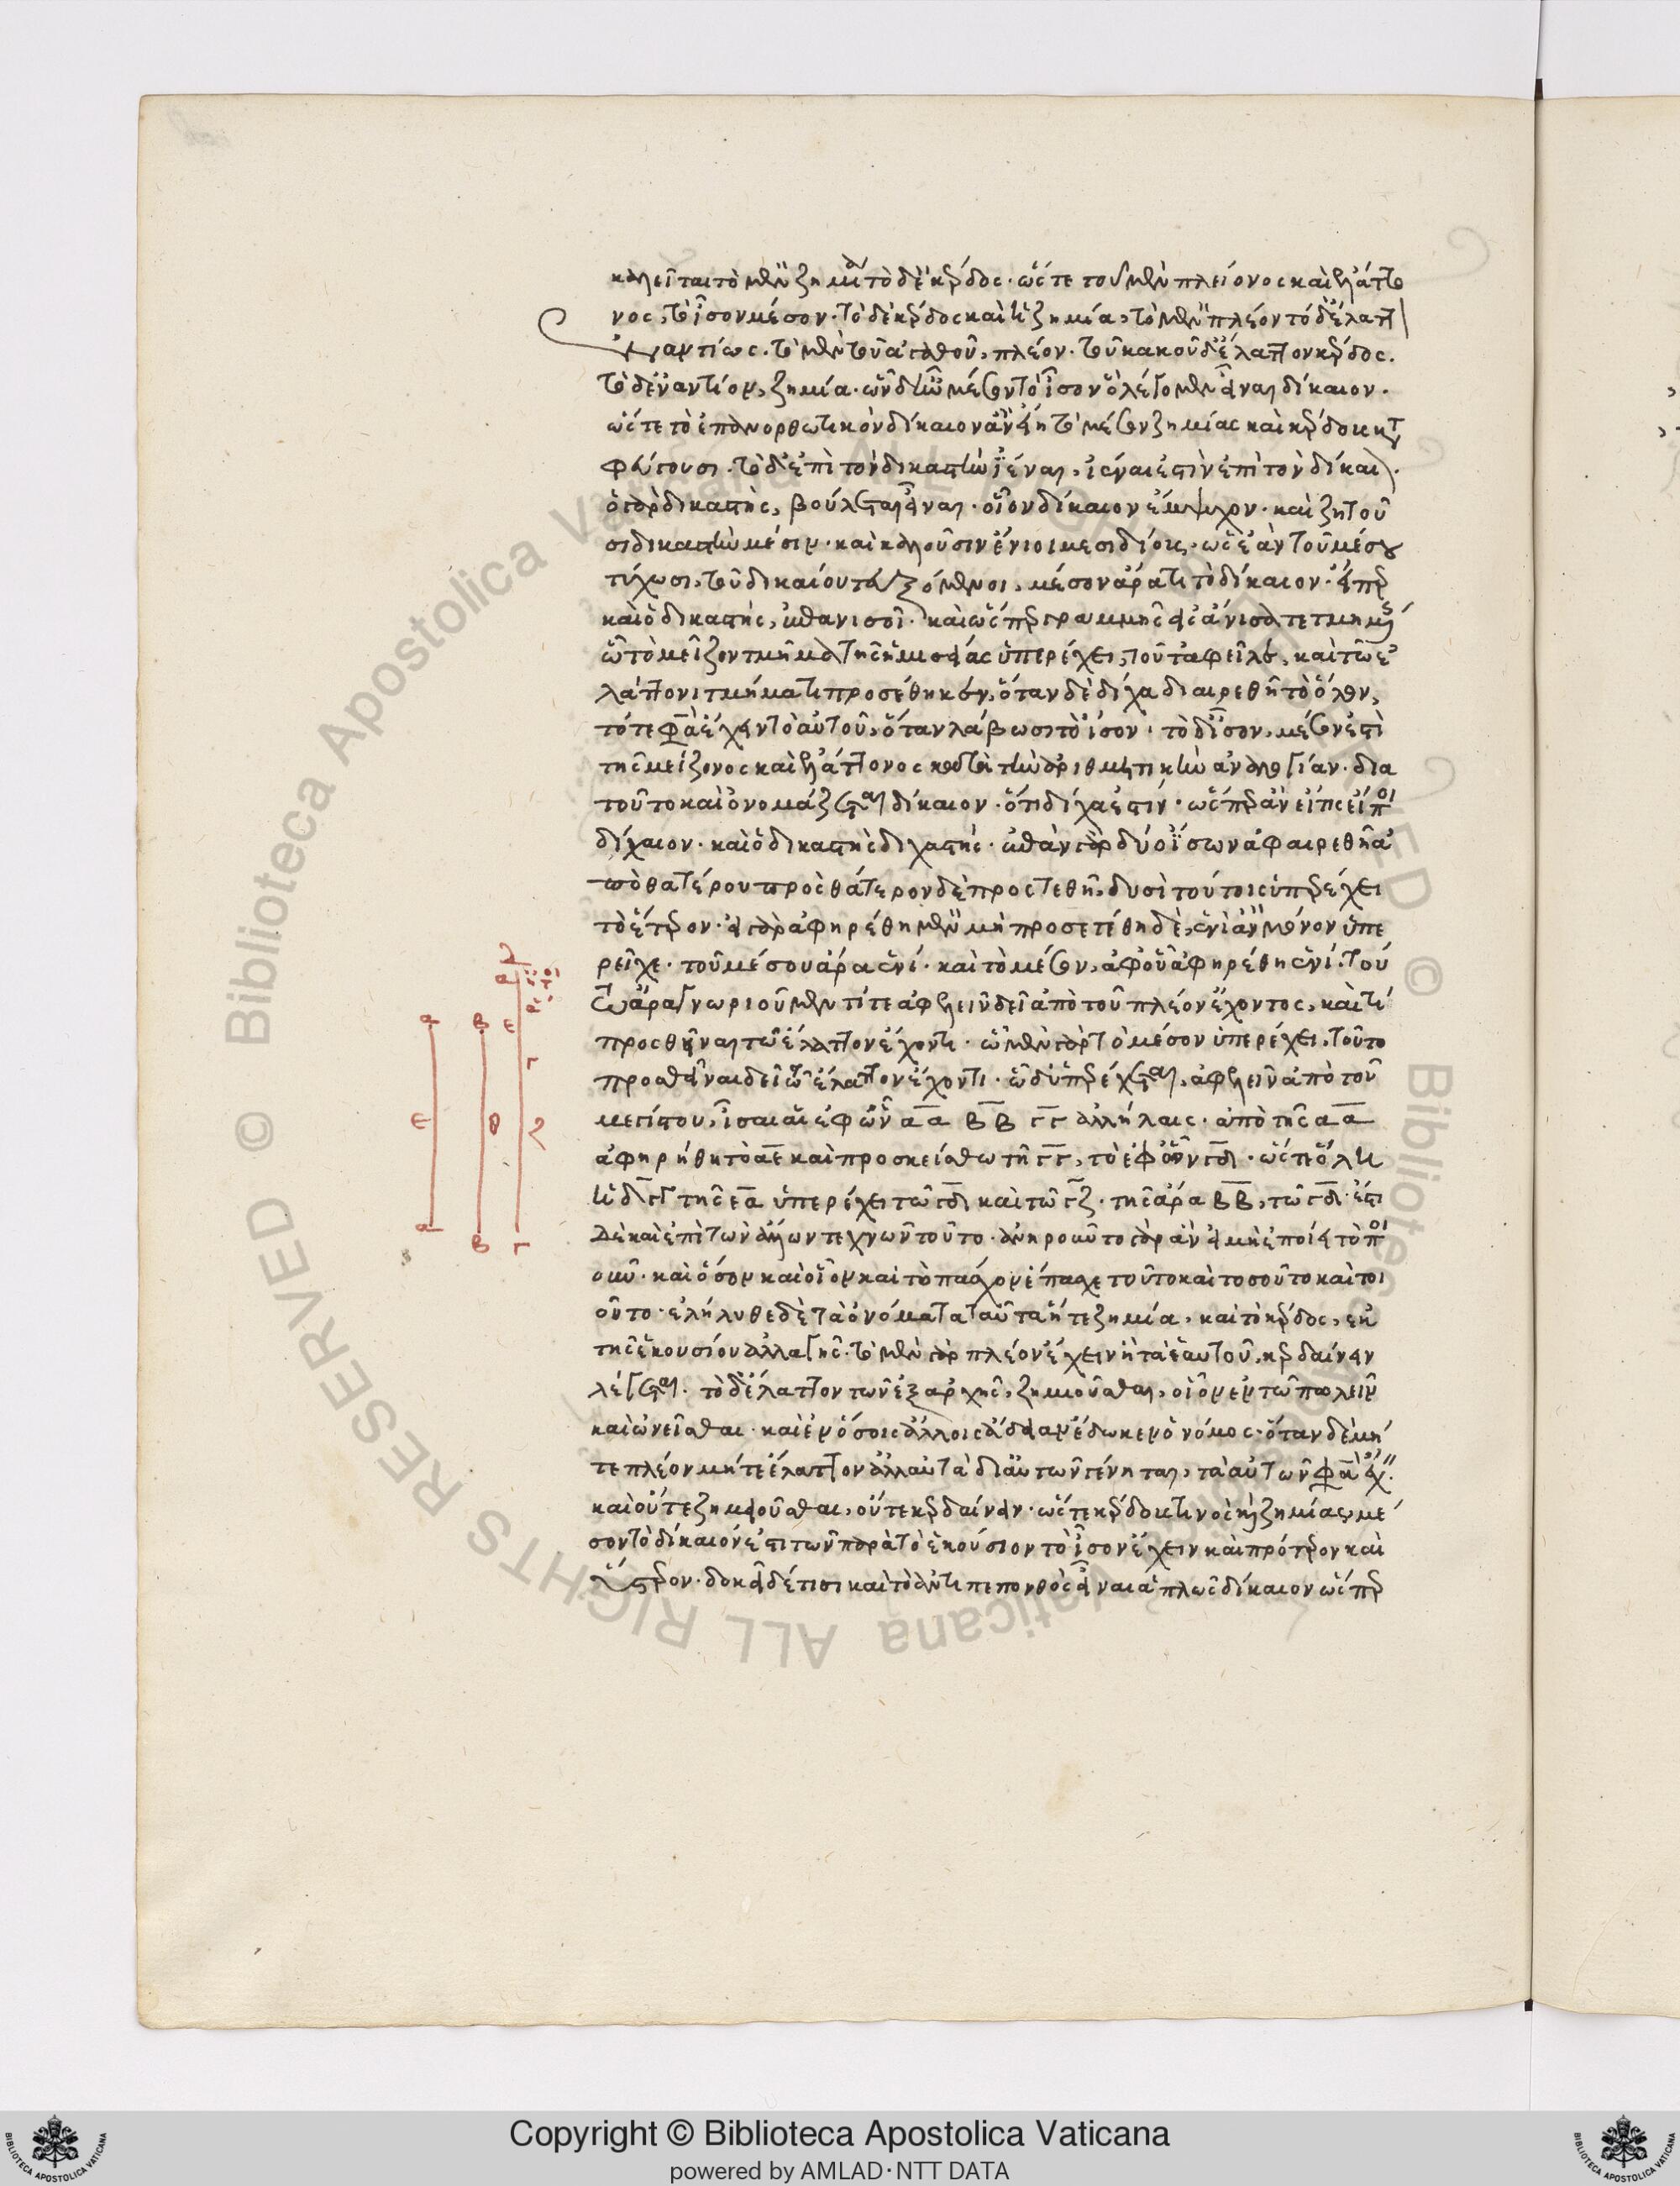 καλεῖται τὸ μὲν ζημία τὸ δὲ κέρδος· ὥστε τοῦ μὲν πλείονος καὶ ἐλάττο
νος, τὸ ἴσον μέσον· τὸ δὲ κέρδος καὶ ἡ ζημία, τὸ μὲν πλέον τὸ δ' ἔλαττον
ἐναντίως. τὸ μὲν τοῦ ἀγαθοῦ, πλέον· τοῦ κακοῦ δ' ἔλαττον κέρδος.
τὸ δ' ἐναντίον, ζημία· ὧν ἦν μέσον τὸ ἴσον ὃ λέγομεν εἶναι δίκαιον.
ὥστε τὸ ἐπανορθωτικὸν δίκαιον ἂν εἴη τὸ μέσον ζημίας καὶ κέρδους
τὸ δ' ἐπὶ τὸν δικαστὴν ἰέναι, ἰέναι ἐστὶν ἐπὶ τὸ δίκαιον.
ὁ γὰρ δικαστὴς, βούλεται εἶναι· οἷον δίκαιον ἔμψυχον· καὶ ζητοῦ
σι δικαστὴν μέσον· καὶ καλοῦσιν ἔνιοι μεσιδίους· ὡς ἐὰν τοῦ μέσου
τύχωσι, τοῦ δικαίου τευξόμενοι, μέσον ἄρα τι τὸ δίκαιον· εἴπερ
καὶ ὁ δικαστής, ἐπανισοῖ· καὶ ὥσπερ γραμμῆς εἰς ἄνισα τετμημένης
ᾧ τὸ μεῖζον τμῆμα τῆς ἡμισείας ὑπερέχει, τοῦτ' ἀφεῖλε, καὶ τῷ ἐ
λάττονι τμήματι προσέθηκεν, ὅταν δὲ δίχα διαιρεθῇ τὸ ὅλον,
τότε φασὶν ἔχειν τὸ αὑτοῦ, ὅταν λάβωσι τὸ ἴσον· τὸ δ' ἴσον, μέσον ἐστὶ
τῆς μείζονος καὶ ἐλάττονος κατὰ τὴν ἀριθμητικὴν ἀναλογίαν· διὰ
τοῦτο καὶ ὀνομάζεται δίκαιον· ὅτι δίχα ἐστίν· ὥσπερ ἂν εἴ τις εἴποι
δίχαιον· καὶ ὁ δικαστὴς διχαστής· ἐπὰν γὰρ δύο ἴσων ἀφαιρεθῇ ἀ
πὸ θατέρου πρὸς θάτερον δὲ προστεθῇ, δυσὶ τούτοις ὑπερέχει
τὸ ἕτερον· εἰ γὰρ ἀφηρέθη μὲν μὴ προσετέθη δὲ, ἑνὶ ἂν μόνον ὑπε
ρεῖχε· τοῦ μέσου ἄρα ἑνί· καὶ τὸ μέσον, ἀφ' οὗ ἀφηρέθη ἑνί. τού
τῳ ἄρα γνωριοῦμεν τί τε ἀφελεῖν δεῖ ἀπὸ τοῦ πλέον ἔχοντος, καὶ τί
προσθεῖναι τῷ ἔλαττον ἔχοντι· ᾧ μὲν γὰρ τὸ μέσον ὑπερέχει, τοῦτο
προσθεῖναι δεῖ τῷ ἔλαττον ἔχοντι· ᾧ δ' ὑπερέχεται, ἀφελεῖν ἀπὸ τοῦ
μεγίστου, ἴσαι αἱ ἐφ' ὧν α̅α̅ Β̅Β̅ Γ̅Γ̅ ἀλλήλαις· ἀπὸ τῆς α̅α̅
ἀφηρήσθη τὸ α̅ε̅ καὶ προσκείσθω τῇ Γ̅Γ̅, τὸ ἐφ' ὧν Γ̅δ̅· ὥστε ὅλη
ἡ δ̅Γ̅Γ̅ τῆς ε̅α̅ ὑπερέχει τῷ Γ̅δ̅ καὶ τῷ Γ̅ζ̅· τῆς ἄρα Β̅Β̅, τῷ Γ̅δ̅· ἔστι
δὲ καὶ ἐπὶ τῶν ἄλλων τεχνῶν τοῦτο· ἀνῃροῦντο γὰρ ἂν εἰ μὴ ἐποίει τὸ ποι
οῦν· καὶ ὅσον καὶ οἷον καὶ τὸ πάσχον ἔπασχε τοῦτο καὶ τοσοῦτο καὶ τοι
οῦτο· ἐλήλυθε δὲ τὰ ὀνόματα ταῦτα ἥ τε ζημία, καὶ τὸ κέρδος, ἐκ
τῆς ἑκουσίου ἀλλαγῆς. τὸ μὲν γὰρ πλέον ἔχειν ἢ τὰ ἑαυτοῦ, κερδαίνειν
λέγεται. τὸ δ' ἔλαττον τῶν ἐξ ἀρχῆς, ζημιοῦσθαι, οἷον ἐν τῷ πωλεῖν
καὶ ὠνεῖσθαι· καὶ ἐν ὅσοις ἄλλοις ἄδειαν ἔδωκεν ὁ νόμος· ὅταν δὲ μή
τε πλέον μήτε ἔλαττον ἀλλ' αὐτὰ δι' αὑτῶν γένηται, τὰ αὑτῶν φασὶν ἔχειν.
καὶ οὔτε ζημιοῦσθαι, οὔτε κερδαίνειν· ὥστε κέρδους τινὸς καὶ ζημίας, μέ
σον τὸ δίκαιόν ἐστι τῶν παρὰ τὸ ἑκούσιον τὸ ἴσον ἔχειν καὶ πρότερον καὶ
ὕστερον· δοκεῖ δέ τισι καὶ τὸ ἀντιπεπονθὸς εἶναι ἁπλῶς δίκαιον ὥσπερ
α
Β
ε
Γ
ε
θ
α
Β
Γ